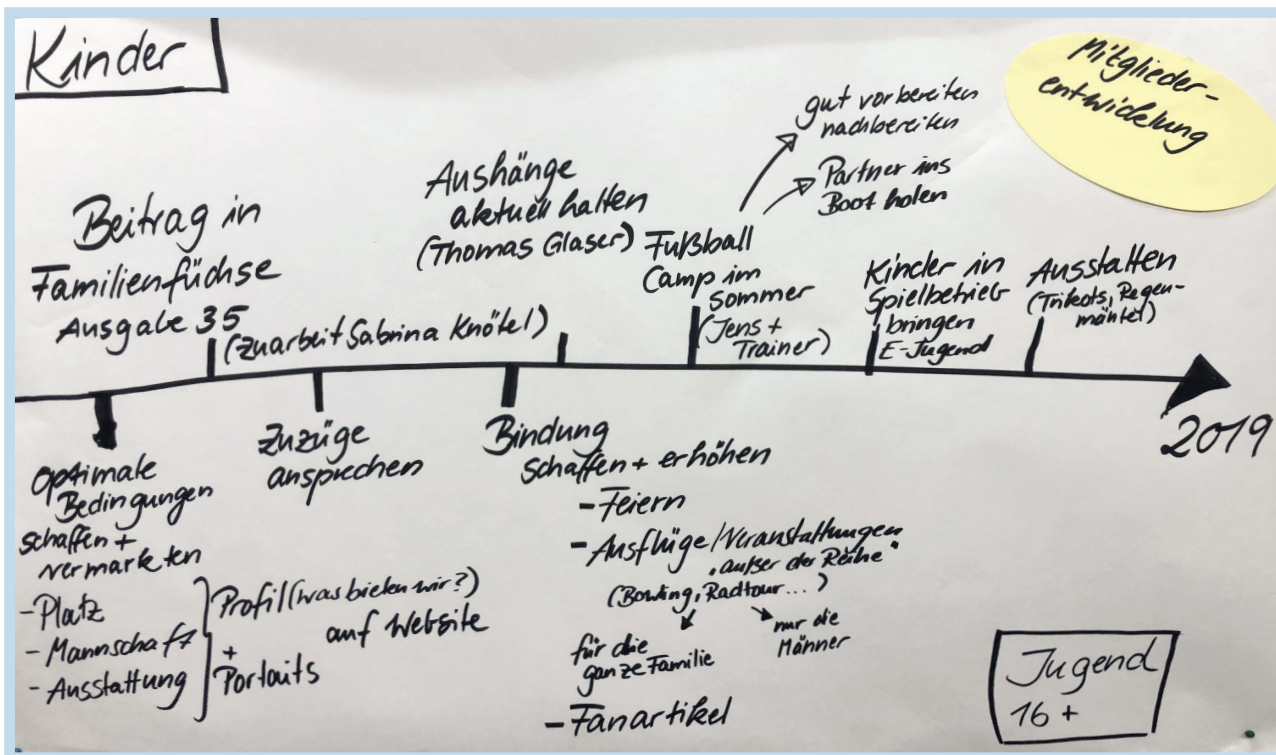 Kinder
Mitglieder-
entwickelung
Beitrag in
Familienfüchse
Ausgabe 35
(Zuarbeit Sabrina Knötel)
Aushänge
aktuell halten
(Thomas Glaser)
gut vorbereiten
nachbereiten
Partner ins
Boot holen
Fußball
Camp im
Sommer
(Jens +
Trainer)
Kinder in
Spielbetrieb
bringen
E-Jugend
Ausstatten
(Trikots, Regen-
mäntel)
2019
optimale
Bedingungen
schaffen +
vermarkten
- Platz
- Mannschaft
- Ausstattung
Profil (was bieten wir?)
auf Website
+
Portaits
Zuzüge
ansprechen
Bindung
schaffen + erhöhen
- Feiern
- Ausflüge/Veranstaltungen
"außer der Reihe"
(Bowling, Radtour...)
für die
ganze Familie
nur die
Männer
- Fanartikel
Jugend
16 +